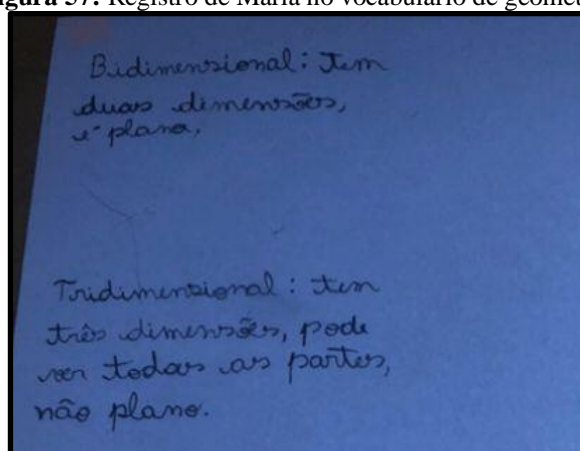 gura 37: Registro de Maria no vocabulário de geomet
Bidimensional: Tem
duas dimensões,
é plano,
Tridimensional: tem
três dimensões, pode
ver todas as partes,
não plano.